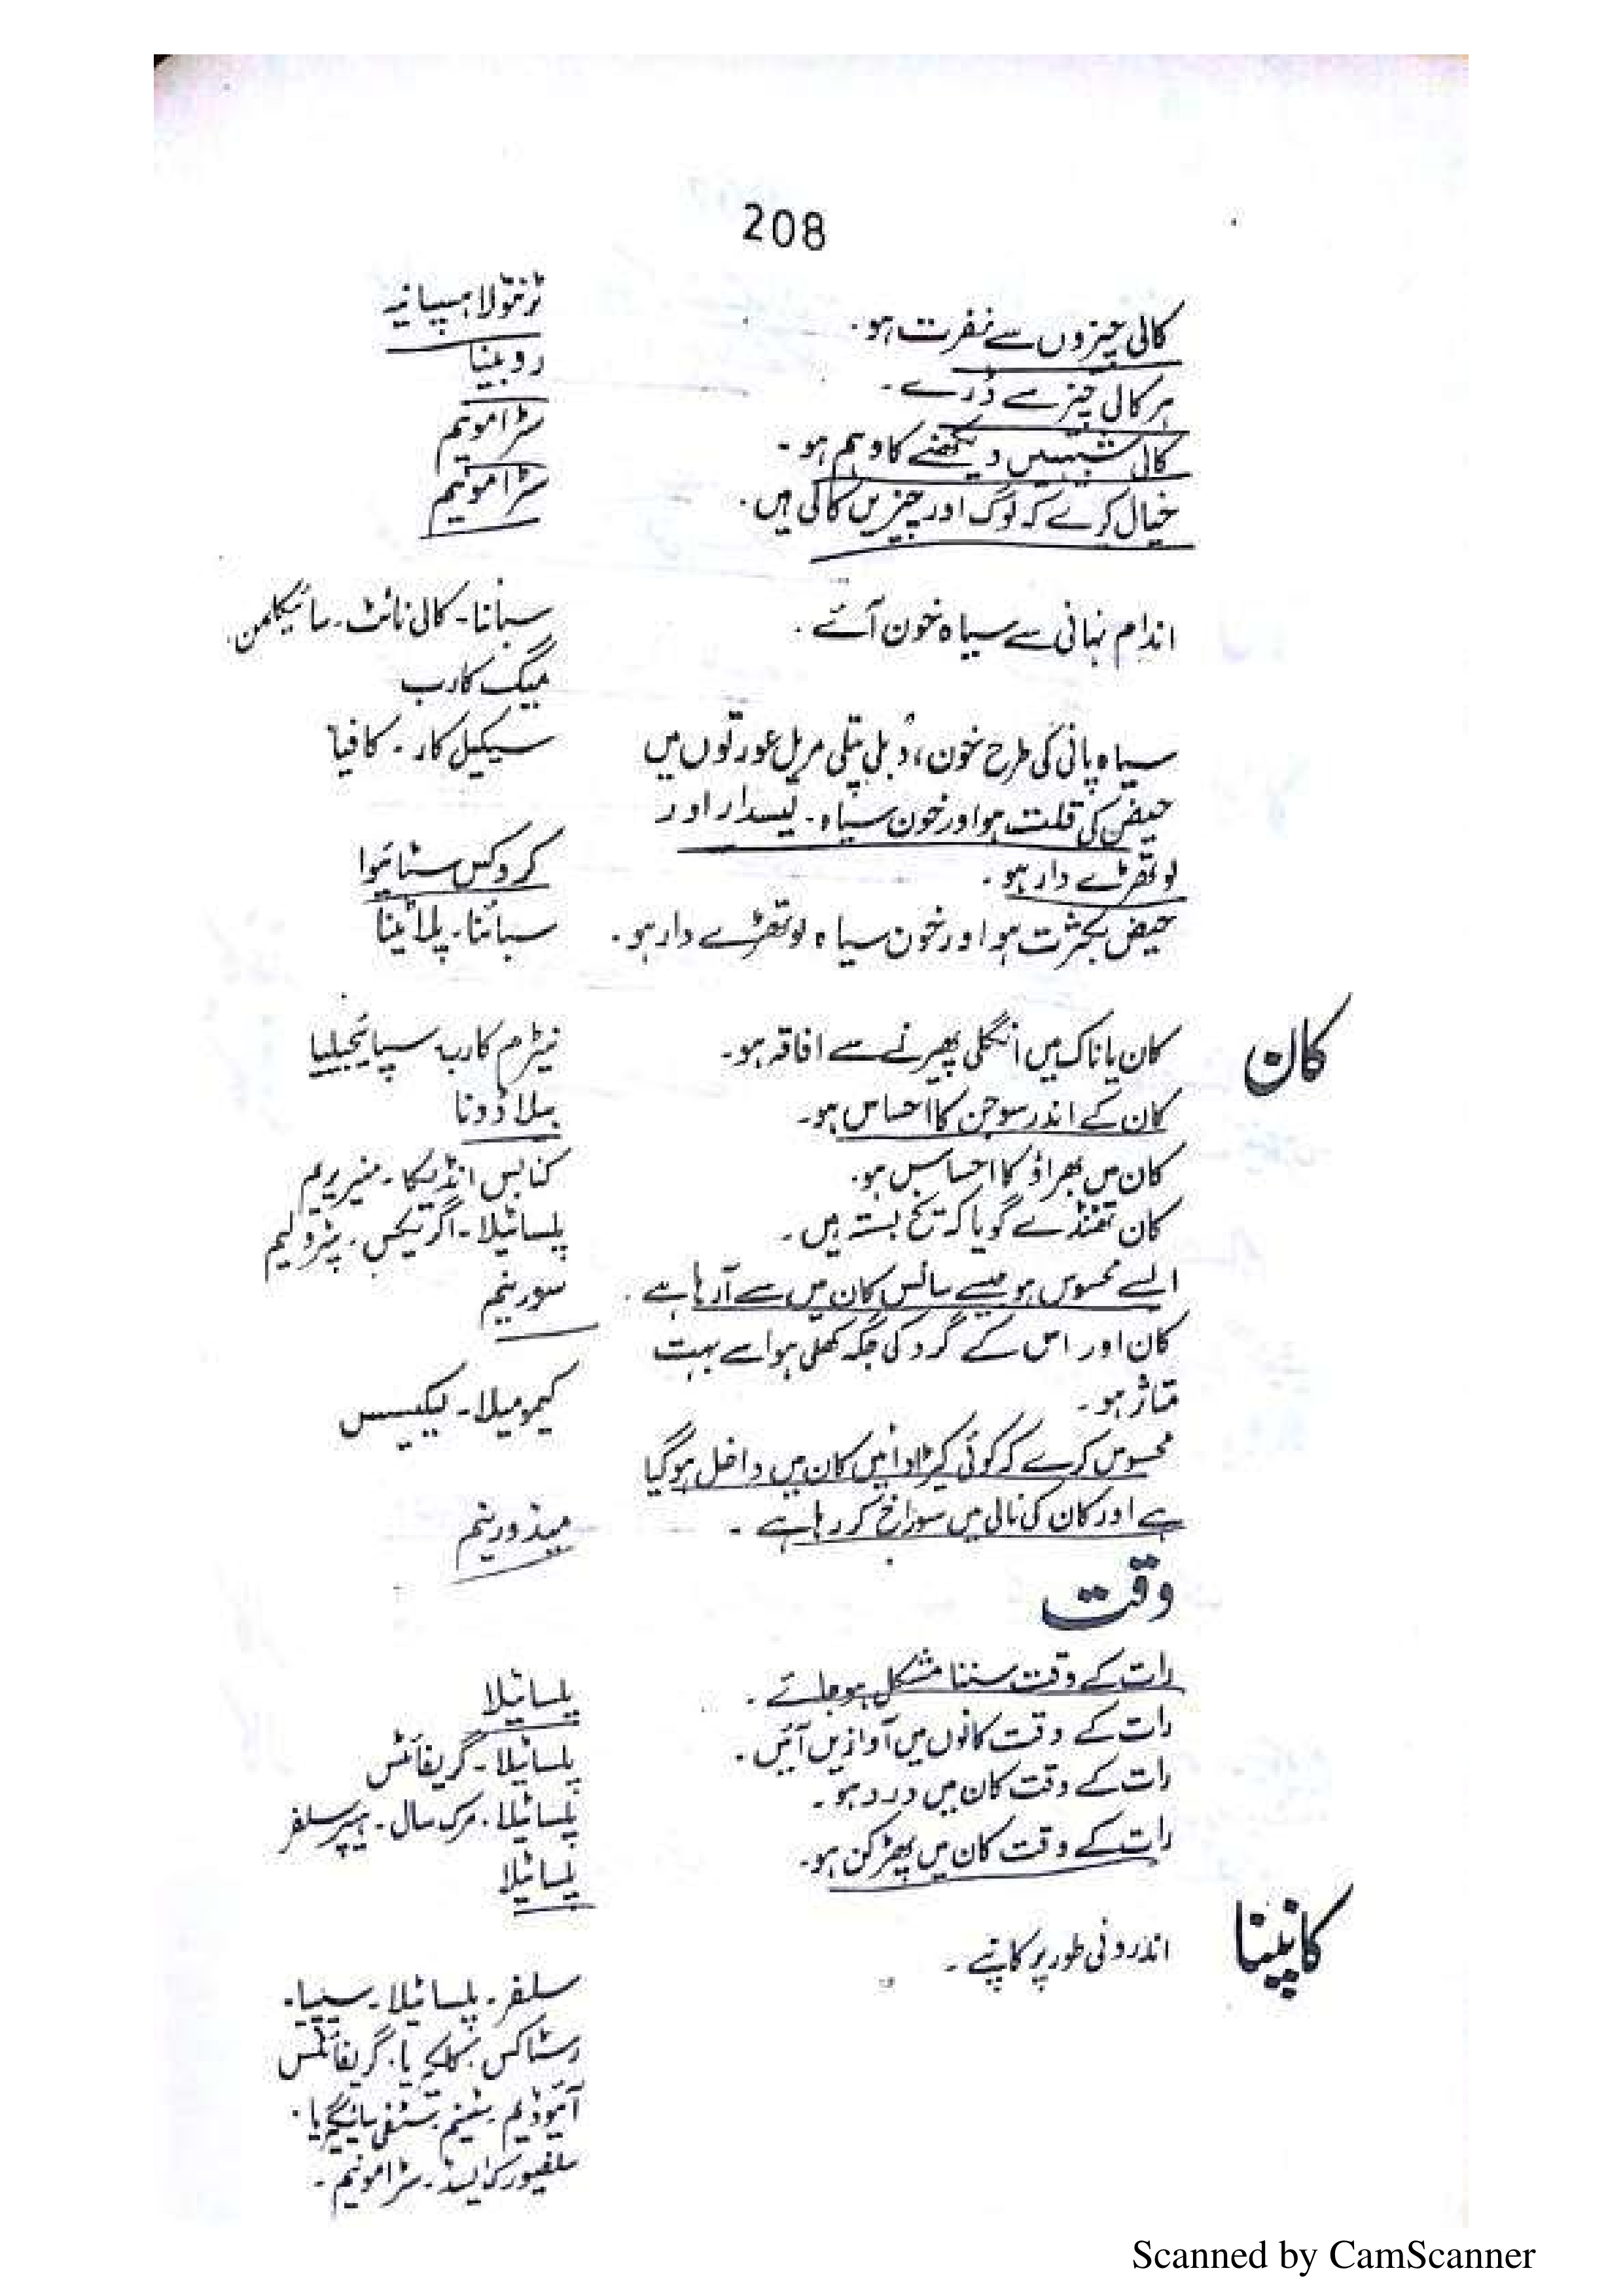 208
کالی چیزوں سے نفرت ہو۔ ٹرنٹولا ہسپانیہ
ہر کالی چیز سے ڈرے۔ روبینا
کالی شبیہیں دیکھنے کا وہم ہو۔ سٹرامونیم
خیال کرے کہ لوگ اور چیزیں کالی ہیں۔ سٹرامونیم
اندام نہانی سے سیاہ خون آئے۔ سبائنا۔ کالی نائٹ۔ سائیکلمن۔
میگ کارب
سیاہ پانی کی طرح خون، دُبلی پتلی مریل عورتوں میں سیکیل کار۔ کافیا
حیض کی قلت ہو اور خون سیاہ۔ لیسدار اور
لوتھڑے دار ہو۔ کروکس سٹائیوا
حیض بکثرت ہو اور خون سیاہ لوتھڑے دار ہو۔ سبائنا۔ پلاٹینا
کان
کان یا ناک میں انگلی پھیرنے سے افاقہ ہو۔ نیٹرم کارب۔ سپائجیلیا
کان کے اندر سوجن کا احساس ہو۔ بیلاڈونا
کان میں بھراؤ کا احساس ہو۔ کنابس انڈیکا۔
کان ٹھنڈے گویا کہ یخ بستہ ہیں۔ پلساٹیلا۔ اگریکس۔ پٹرولیم
ایسے محسوس ہو جیسے سانس کان میں سے آ رہا ہے۔ سورینم
کان اور اس کے گرد کی جگہ کھلی ہوا سے بہت
متاثر ہو۔ کیمومیلا۔ لیکیسس
محسوس کرے کہ کوئی کیڑا دائیں کان میں داخل ہو گیا
ہے اور کان کی نالی میں سوراخ کر رہا ہے۔ میڈورینم
وقت
رات کے وقت سننا مشکل ہو جائے۔ پلساٹیلا
رات کے وقت کانوں میں آوازیں آئیں۔ پلساٹیلا۔ گریفائٹس
رات کے وقت کان میں درد ہو۔ پلساٹیلا۔ مرک سال۔ ہیپر سلفر
رات کے وقت کان میں پھڑکن ہو۔ پلساٹیلا
کانپنا
اندرونی طور پر کانپے۔
سلفر۔ پلساٹیلا۔ سیپیا۔
رسٹاکس۔ کلکیریا۔ گریفائٹس
آئیوڈیم۔ سٹینم۔ سٹفی سائیگیریا۔
سلفیورک ایسڈ۔ سٹرامونیم۔
Scanned by CamScanner